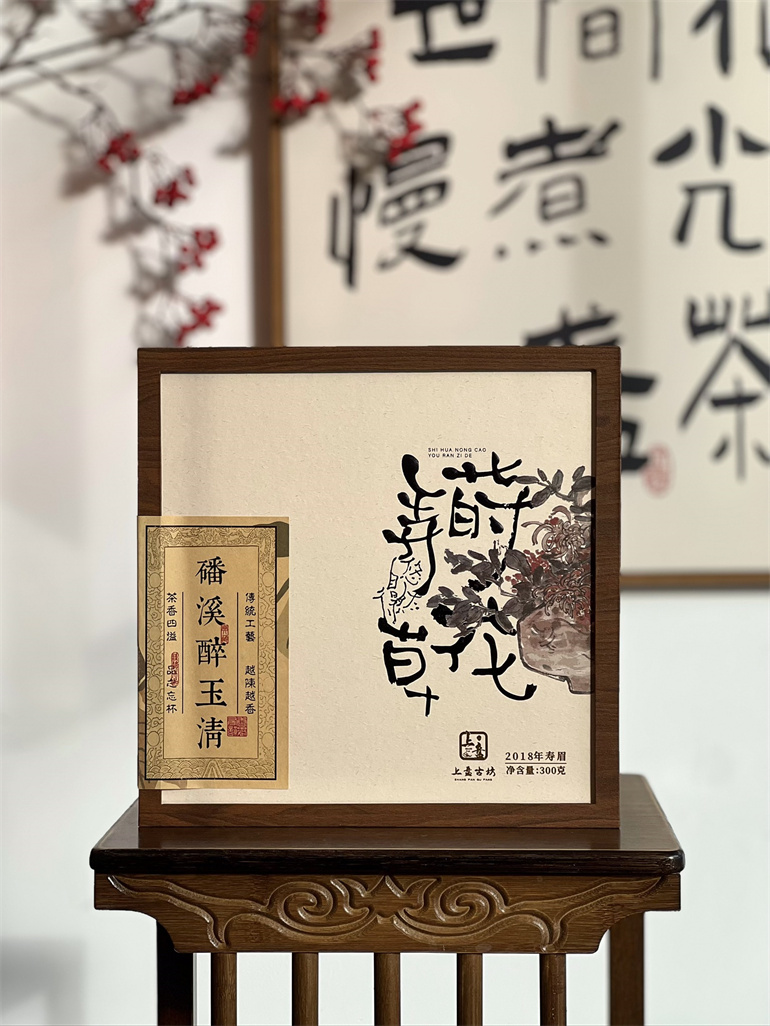 間
慢 煮 光
茶
SHI HUA NONG CAO
YOU RAN ZI DE
莳花
弄草
悠然
自得
傳統工藝 越陳越香
磻溪醉玉清
茶香四溢 品之忘杯
上盘古坊
SHANG PAN GU FANG
2018年寿眉
净含量:300克